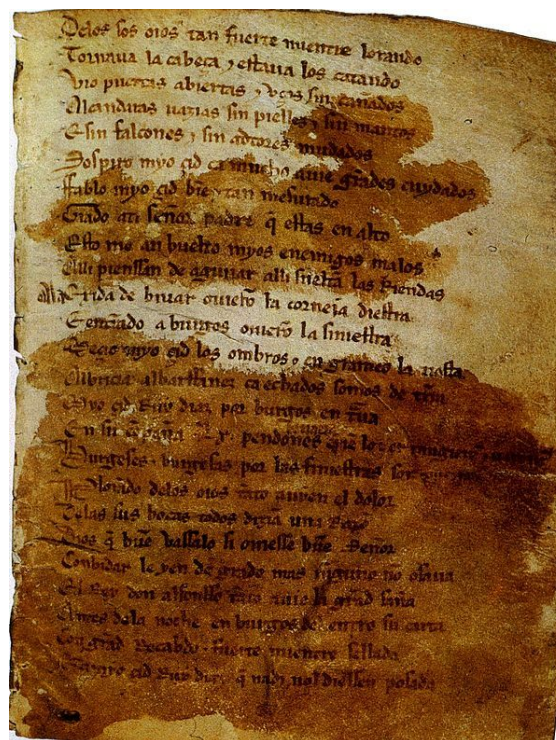 Delos sos oios tan fuerte mientre lorando
Tornaua la cabeça ⁊ estaua los catando
Vio puertas abiertas ⁊ vços sin cañados
Alcandaras uazias sin pielles ⁊ sin mantos
E sin falcones ⁊ sin adtores mudados
Sospiro myo çid ca mucho auie grãdes cuydados
ffablo myo çid bie ⁊ tan mesurado
Grado ati señor padre q̃ estas en alto
Esto me an buelto myos enemigos malos
Alli pienssan de aguiiar alli sueltã las Riendas
Ala Exida de biuar ouierõ la corneia diestra
E entrãdo a burgos ouierõ la siniestra
Meçio myo çid los ombros ⁊ en grameo la tiesta
Albricia albarffanez ca echados somos de trã
Myo çid Ruy diaz por burgos en
En su cõpaña Lx pendones
Burgeses ⁊ burgesas por las finiestras
Plorando delos oios tãto auyen el dolor
Delas sus bocas todos dizian una Razo
Dios q̃ bue vassalo si ouiesse bue Señor
Conbidar le yen de grado mas ninguno no osaua
El Rey don alfonsso tãto auie la grãd saña
Antes dela noche en burgos del entro su carta
Con grãd Recabdo ⁊ fuerte mientre sellada
çid Ruy diaz q̃ nadi nol diessen posada